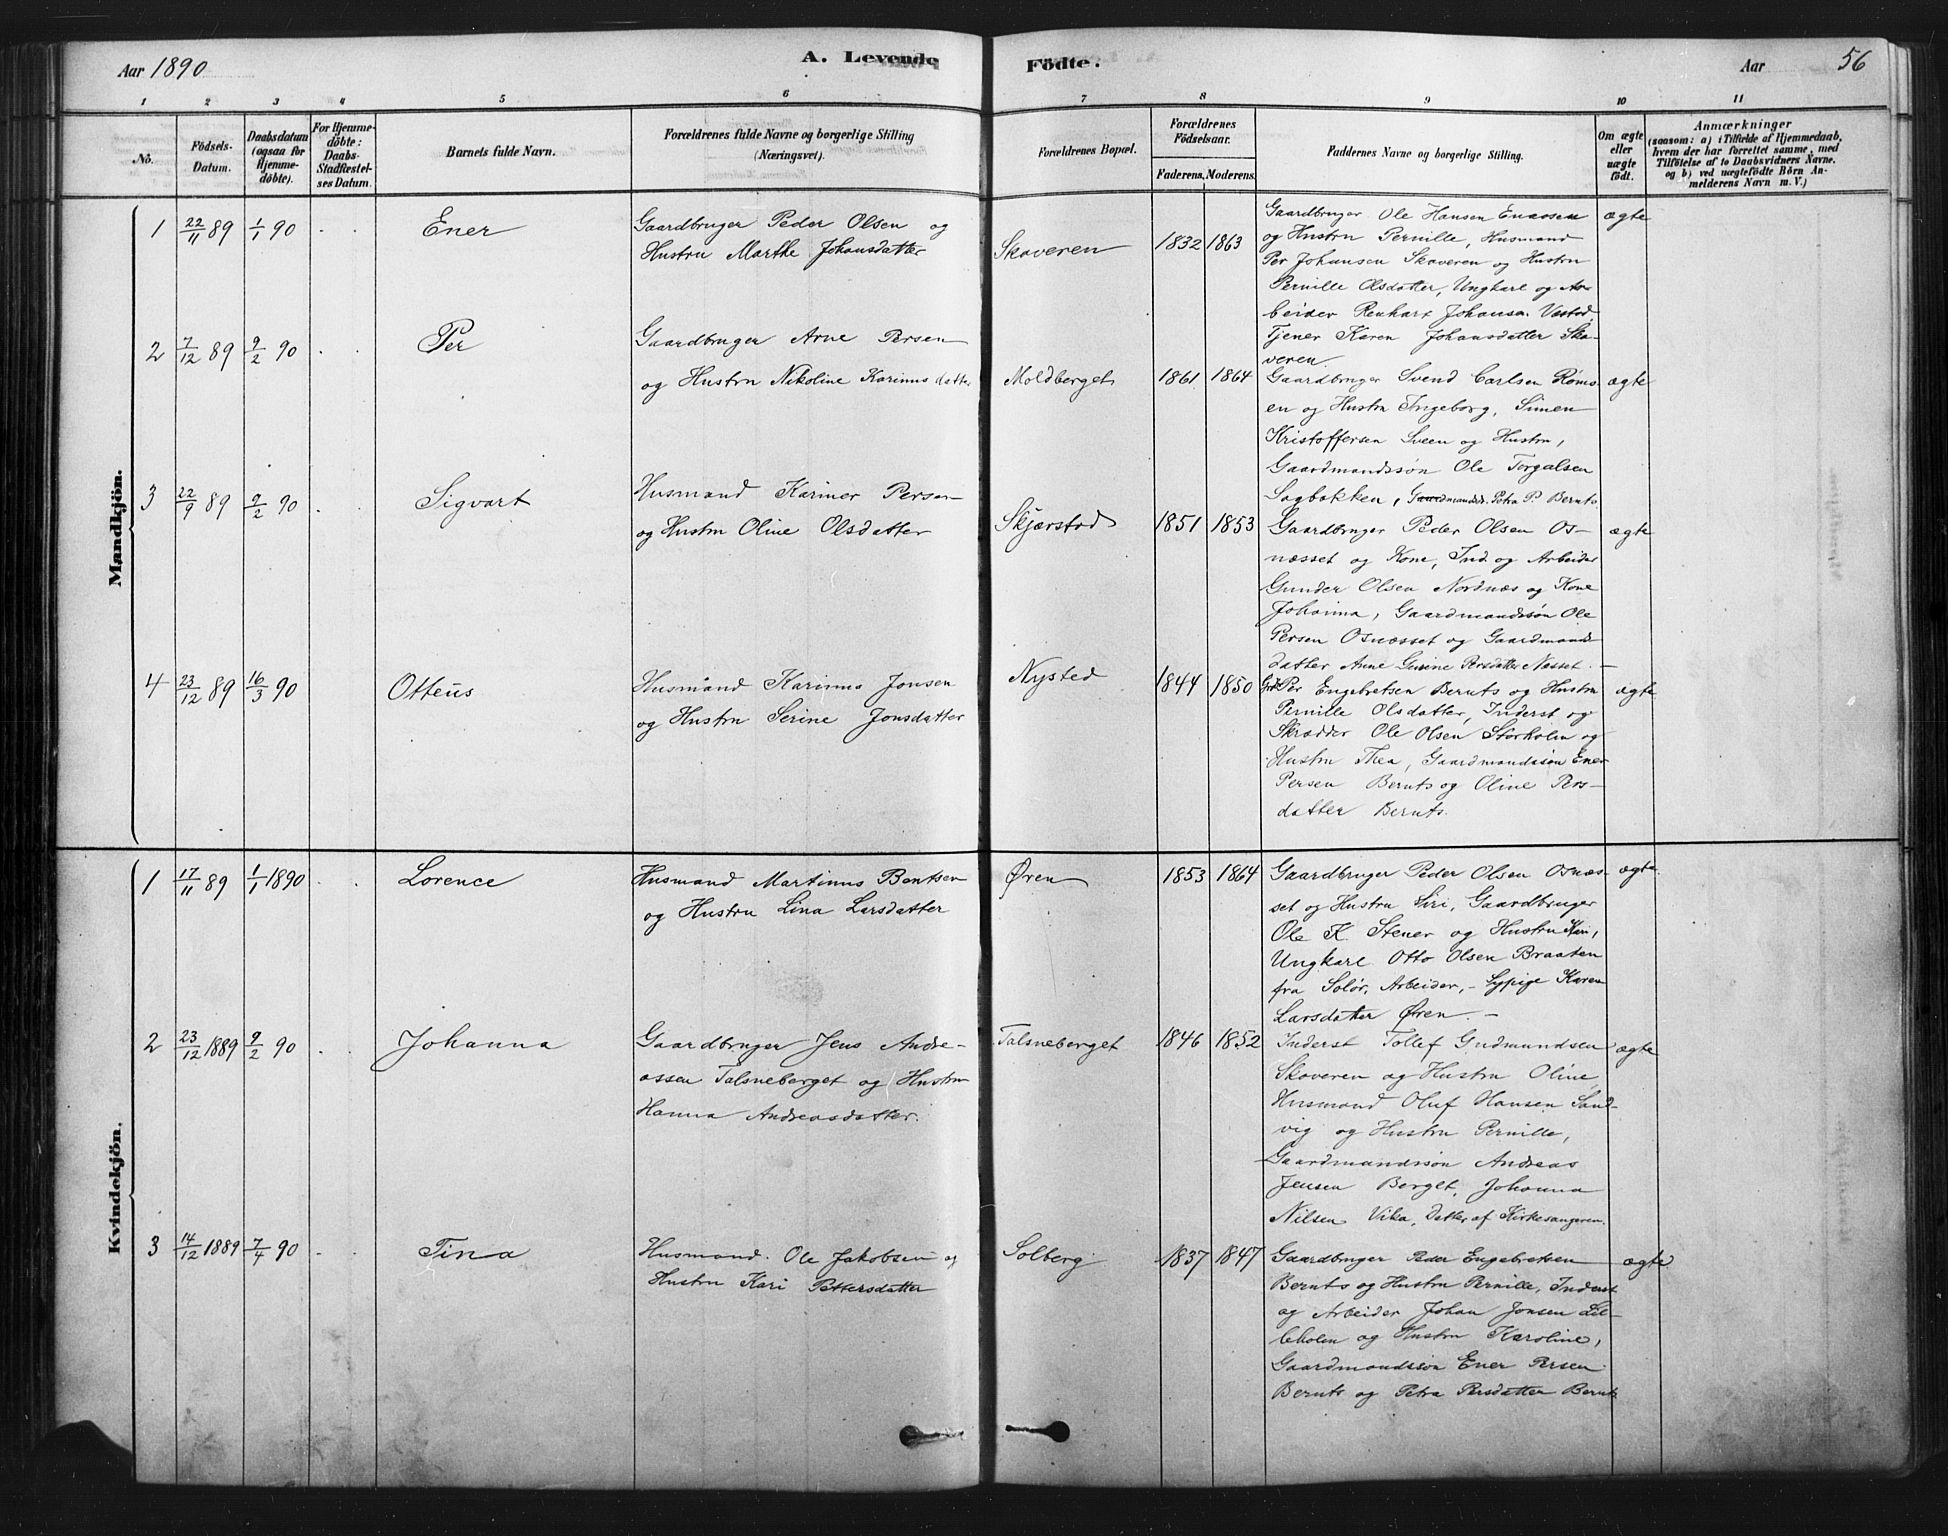 Aar 1890
A. Levende Födte.
Aar
56
1 2 3 4 5 6 7 8 9 10 11
No.
Födsels-
Datum.
Daabsdatum
(ogsaa for
Hjemme-
döbte).
For Hjemme-
döbte:
Daabs-
Stadfæstel-
ses Datum.
Barnets fulde Navn.
Forældrenes fulde Navne og borgerlige Stilling
(Næringsvei).
Forældrenes Bopæl.
Forældrenes
Födselsaar.
Faderens. Moderens.
Faddernes Navne og borgerlige Stilling.
Om ægte
eller
uægte
födt.
Anmærkninger
(saasom: a) i Tilfælde af Hjemmedaab,
hvem der har forrettet samme, med
Tilföielse af to Daabsvidners Navne.
og b) ved uægtefödte Börn An-
melderens Navn m. V.)
Mandkjön.
1 22/11 89 1/1 90 Ener
Gaardbruger Peder Olsen og
Hustru Marthe Johansdatter
Skaveren 1832 1863
Gaardbruger Ole Hansen Enaasen
og Hustru Pernille, Husmand
Per Johansen Skaveren og Hustru
Pernille Olsdatter, Ungkarl og Ar-
beider Renhart Johansen Vestad,
Tjener Karen Johansdatter Ska-
veren
ægte
2 7/12 89 9/2 90 Per
Gaardbruger Arne Persen
og Hustru Nikoline Karinusdatter
Moldberget 1861 1864
Gaardbruger Svend Carlsen Röms-
en og Hustru Ingeborg, Simen
Kristoffersen Sveen og Hustru,
Gaardmandssön Ole Torgalsen
Sagbakken, Gaardmandsd. Petra P. Bernts
ægte
3 22/9 89 9/2 90 Sigvart
Husmand Karines Persen
og Hustru Oline Olsdatter
Skjærstad 1851 1853
Gaardbruger Peder Olsen Os-
næsset og Kone, Ind. og Arbeider
Gunder Olsen Nordnæs og Kone
Johanna, Gaardmandssön Ole
Persen Osnæsset og Gaardmands-
datter Anne Gurine Persdatter Næsset. -
ægte
4 23/12 89 16/3 90 Otteus
Husmand Karinus Jonsen
og Hustru Serine Jonsdatter
Nysted 1844 1850
Gdbr Per Engebretsen Bernts og Hustru
Pernille Olsdatter, Inderst og
Skrædder Ole Olsen Storholm og
Hustru Thea, Gaardmandssön Ener
Persen Bernts og Oline Pers-
datter Bernts.
ægte
Kvindekjön.
1 17/11 89 1/1 1890 Lorence
Husmand Martinus Bentsen
og Hustru Lina Larsdatter
Øren 1853 1864
Gaardbruger Peder Olsen Osnæs-
set og Hustru Siri, Gaardbruger
Ole K. Stener og Hustru Kari,
Ungkarl Otto Olsen Braaten
fra Solör, Arbeider, - Sypige Karen
Larsdatter Øren. -
ægte
2 23/12 1889 9/2 90 Johanna
Gaardbruger Jens Andre-
assen Talsneberget og Hustru
Hanna Andreasdatter.
Talsneberget 1846 1852
Inderst Tollef Gudmundsen
Skaveren og Hustru Oline
Husmand Oluf Hansen Sand-
vig og Hustru Pernille,
Gaardmandssön Andreas
Jensen Berget, Johanna
Nilsen Vika, Datter af Kirkesangeren.
ægte
3 14/12 1889 7/4 90 Tina
Husmand Ole Jakobsen og
Hustru Kari Pettersdatter
Solberg 1837 1847
Gaardbruger Peder Engebretsen
Bernts og Hustru Pernille, Inderst
og Arbeider Johan Jonsen Lil-
leholen og Hustru Karoline,
Gaardmandssön Ener Persen
Bernts og Petra Persdatter Bernts
ægte